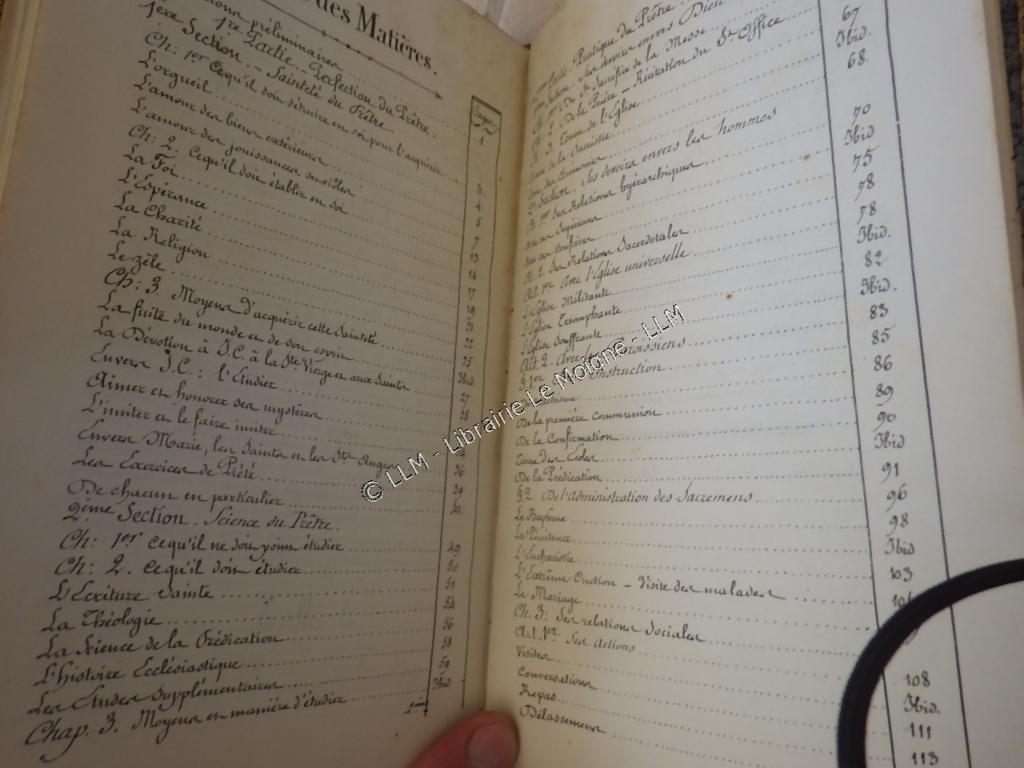 des Matières.
préliminaires
1ère Partie. Perfection du Prêtre.
1ère Section. - Sainteté du Prêtre
Ch: 1er Ce qu'il doit détruire en soi pour l'acquérir
L'orgueil
L'amour des biens extérieurs
L'amour des jouissances sensibles
Ch: 2. Ce qu'il doit établir en soi
La Foi
L'Espérance
La Charité
La Religion
Le zèle
Ch: 3. Moyens d'acquérir cette Sainteté
La fuite du monde et de son esprit
La Dévotion à J.C. à la Ste Vierge et aux Saints
Envers J.C.: l'Etudier
Aimer et honorer ses mystères
L'imiter et le faire imiter
Envers Marie, les Saints et les Sts Anges
Les Exercices de Piété
De chacun en particulier
2ème Section. Science du Prêtre.
Ch: 1er Ce qu'il ne doit point étudier 49
Ch: 2. Ce qu'il doit étudier 50
L'Ecriture Sainte 51
La Théologie 54
La Science de la Prédication 56
L'histoire Ecclésiastique 58
Les Etudes Supplémentaires 59
Chap. 3. Moyens et manière d'étudier Ibid
Pratique du Prêtre
Ses devoirs envers Dieu 67
Du St Sacrifice de la Messe Ibid.
De la Prière - Récitation du St Office 68.
Tenue de l'Eglise
Tenue de la Sacristie
2e Section. Ses devoirs envers les hommes 70
Ch: 1er Ses Relations hyérarchiques Ibid
Avec ses Supérieurs 75
Avec ses Confrères 78
Ch. 2. Ses Relations Sacerdotales 78
Art. 1er Avec l'Eglise universelle Ibid.
L'Eglise Militante 82
L'Eglise Triomphante Ibid.
L'Eglise Souffrante 83
Art 2. Avec Paroissiens 85
§.1er Instruction 86
De la première Communion 89
De la Confirmation 90
Tenue des Ecoles Ibid
De la Prédication 91
§.2 De l'administration des Sacremens 96
Le Baptême 98
La Pénitence Ibid
L'Eucharistie 103
L'Extrême Onction - Visite des malades
Le Mariage
Ch. 3: Ses relations Sociales
Art. 1er Ses actions
Visites 108
Conversations Ibid.
Repas 111
Délassemens 113
© LLM - Librairie Le Molone - LLM